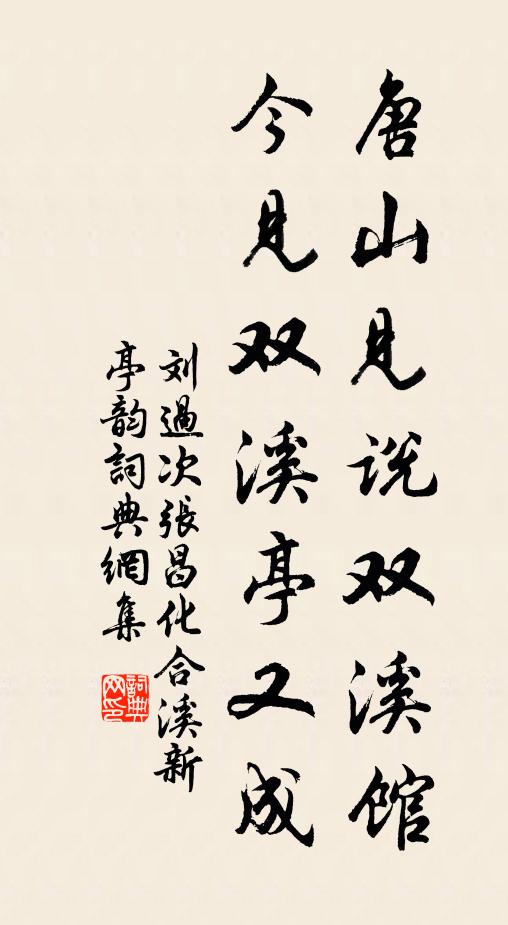 唐山见说双溪馆
今见双溪亭又成
刘過次張昌化合溪新
亭韵詞典網集
詞典网印